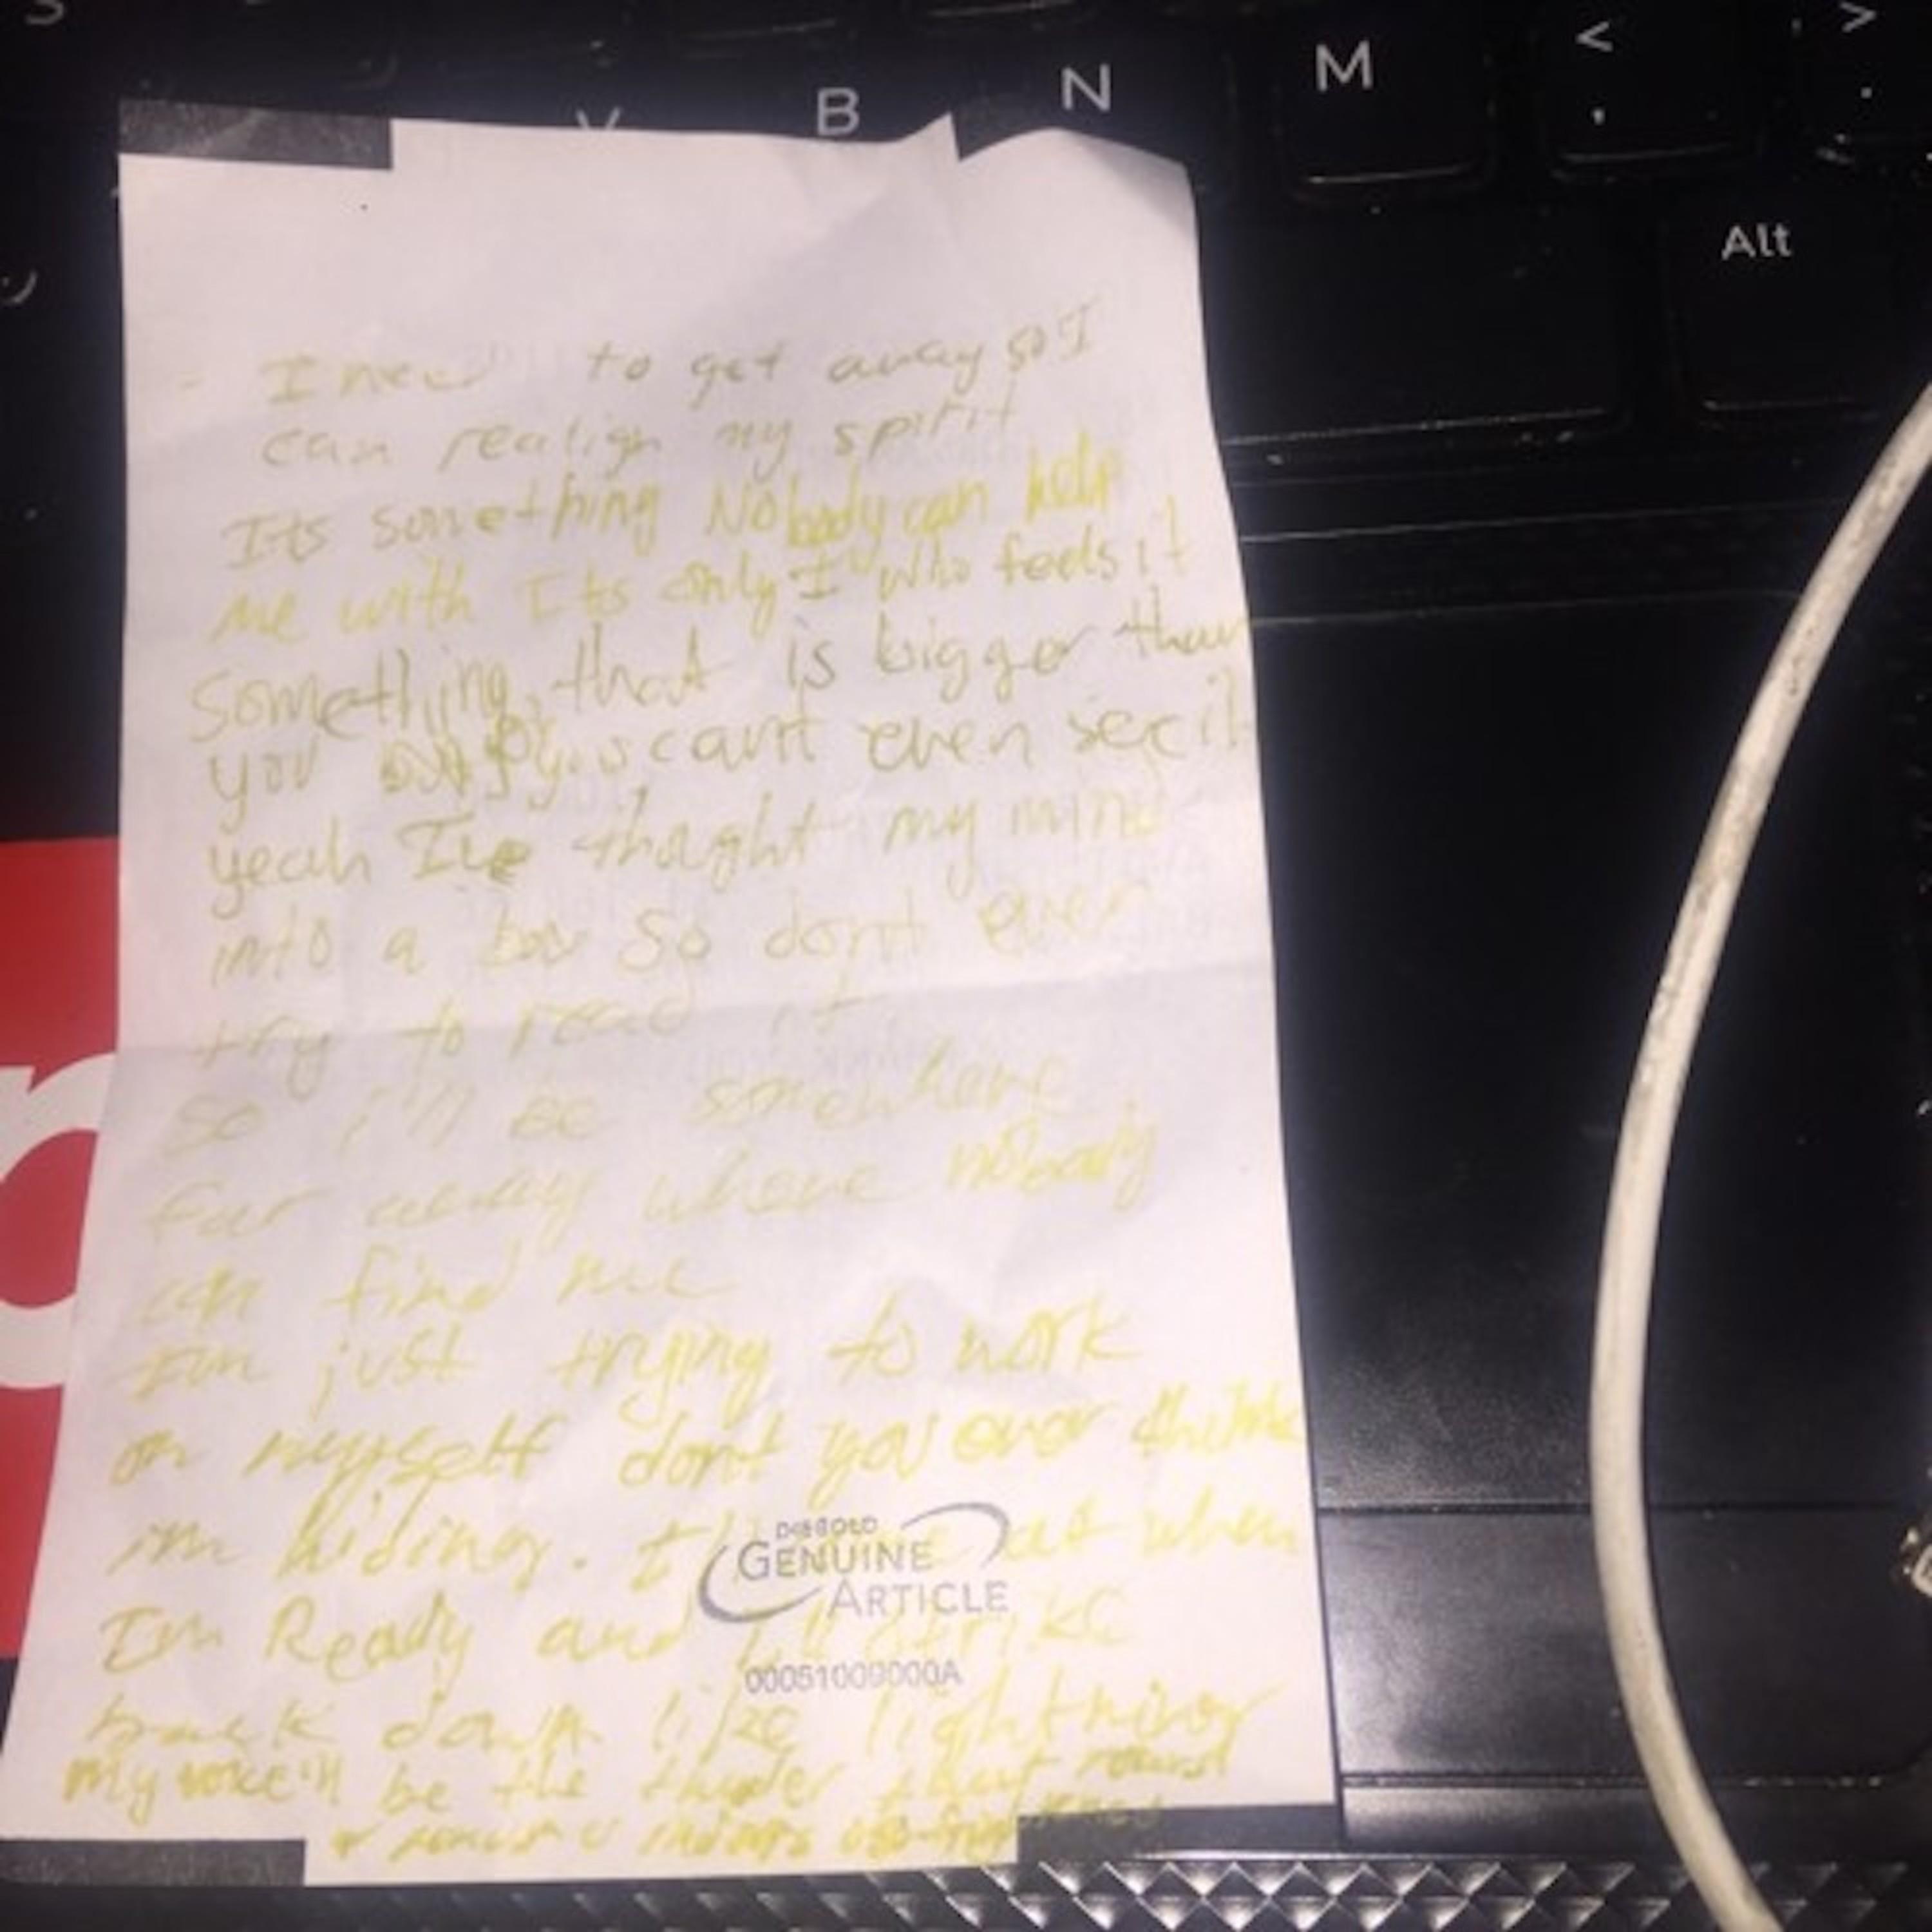 S
V
B
N
M
<
,
>
.
Alt
I need to get away so I
can realign my spirit
Its something Nobody can help
me with Its only I who feels it
Something that is bigger than
you but you cant even see it
yeah I've thought my mind
into a box so dont even
try to read it
so i'll be somewhere
far away where nobody
can find me
Im just trying to work
on myself dont you ever think
im hiding. at when
DIEBOLD
GENUINE
ARTICLE
Im Ready and I'll strike
00051009000A
back down like lightning
my voice'll be the thunder that